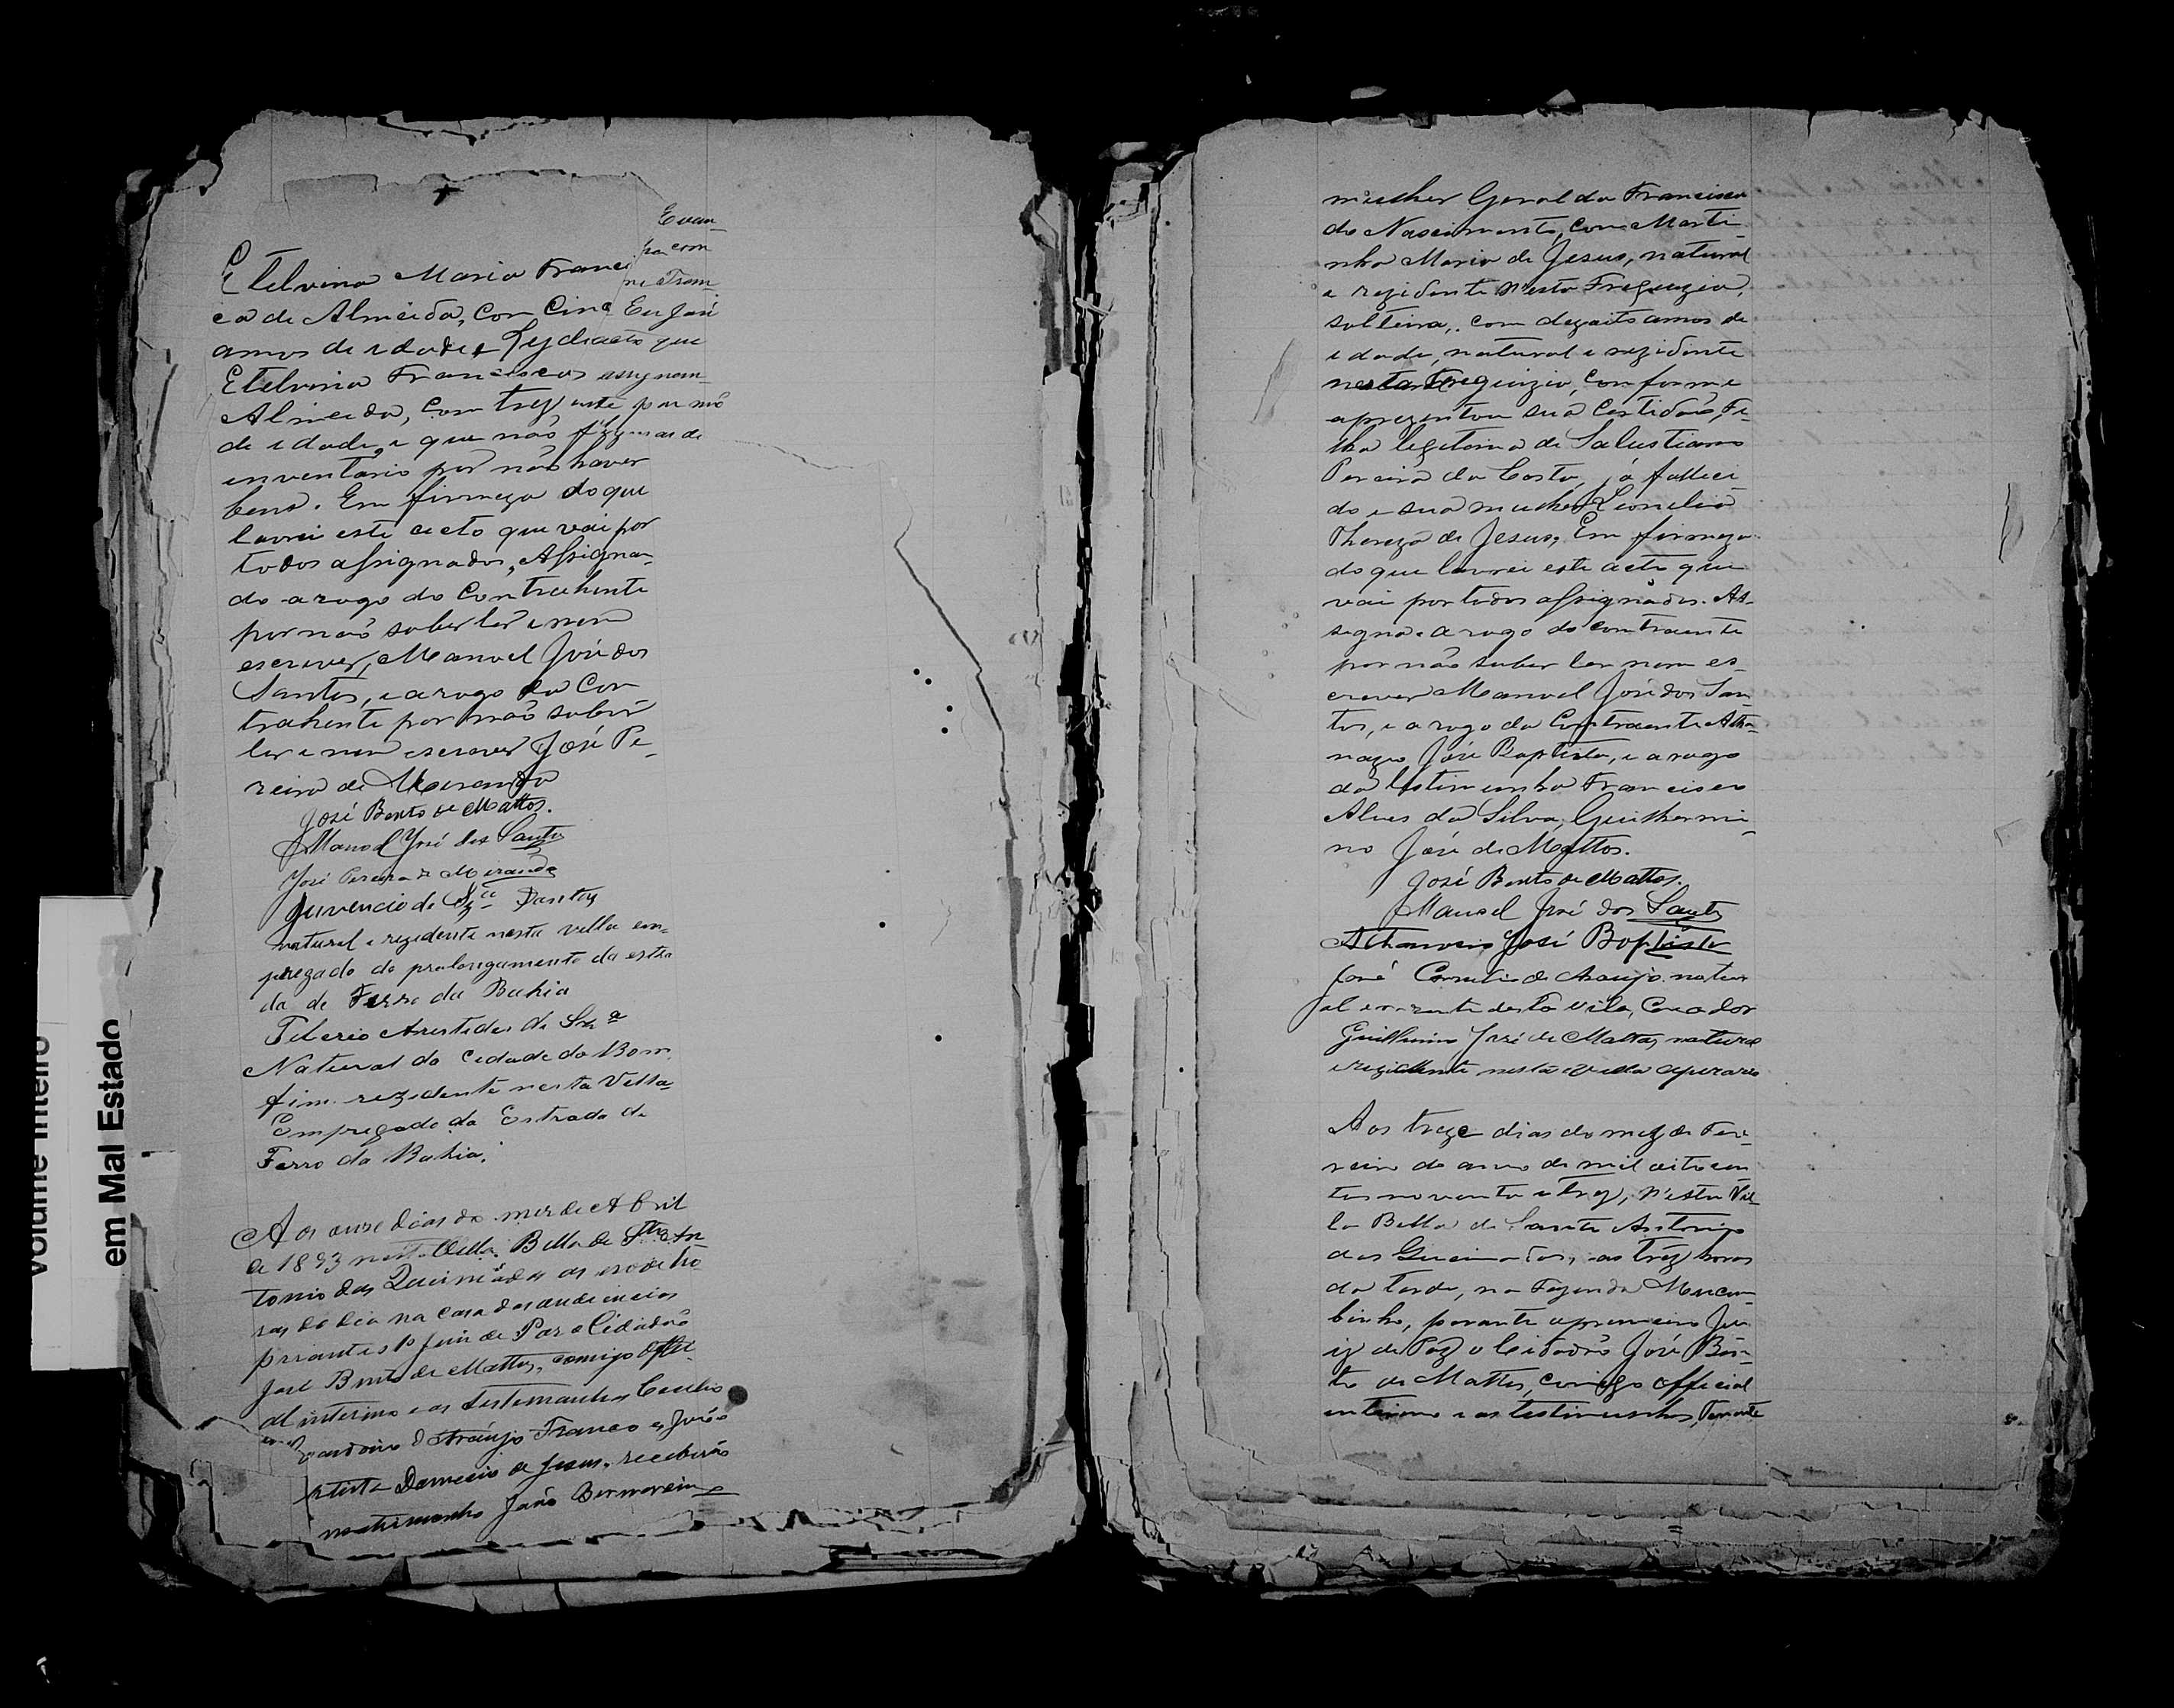 Volume Inteiro
em Mal Estado
Evan-
pa com
ne Fran-
Eu José
acto que
assignam-
Etelvina Maria Franci
ca de Almeida, com cinc
annos de idade e Lydia
Etelvina Francisca
Almeida, com trez
de idade, e que não fez
inventario por não haver
bens. Em firmeza do que
lavrei este acto que vai por
todos assignados, Assignan-
do a rogo do Contrahente
por não saber ler e nem
escrever, Manoel José dos
Santos, e a rogo da Con
trahente por não saber
ler e nem escrever José Pe-
reira de Miranda
José Bento de Mattos.
Manoel José dos Santos
José Pereira de Miranda
Juvencio de Sza Dantas
natural e rezidente nesta villa em-
pregado do prolongamento da estra
da de Ferro da Bahia
Tiberio Aristides de Sza
Natural da Cidade do Bom
fim rezidente nesta Villa
Empregado da Estrada de
Ferro da Bahia.
Aos onze dias do mez de Abril
de 1893 nesta Villa Bella de Sto An
tonio das Queimadas as
ras do dia na casa das audiencias
perante o 1o Juiz de Paz o Cidadão
José Bento de Mattos, comigo Offici-
al interino e as testemunhas
de Araujo Franco e João
Damecio de Jesus, receberão
matrimonho João
mulher Geralda Francisca
do Nascimento, com Marti-
nha Maria de Jesus, natural
e rezidente n'esta Freguezia,
solteira, com dezoito annos de
idade, natural e rezidente
nesta Freguezia, conforme
aprezentou sua Certidão, Fi-
lha legitima de Salustiano
Pereira da Costa, já falleci
do e sua mulher
Thereza de Jesus, Em firmeza
do que lavrei este acto que
vai por todos assignados. As-
signa a rogo do contraente
por não saber ler nem es-
crever Manoel José dos San
tos, e a rogo da Contraente Atha-
nazio José Baptista, e a rogo
da testimunha Francisco
Alves da Silva, Guilhermi-
no José de Mattos.
José Bento de Mattos.
Manoel José dos Santos
Athanazio José Baptista
José de Araujo natur
al e desta Vila, Creador
Guilhermino José de Mattos, natural
e rezidente nesta villa operario
Aos treze dias do mez de Fev-
reiro do anno de mil oito cen
tos noventa e trez, n'esta Vil-
la Bella de Santo Antonio
das Queimadas, as trez horas
da tarde, na Fazenda Mucam-
binho, perante o primeiro Ju-
iz de Paz o Cidadão José Ben-
to de Mattos, comigo official
interino e as testimunhas, Tenente